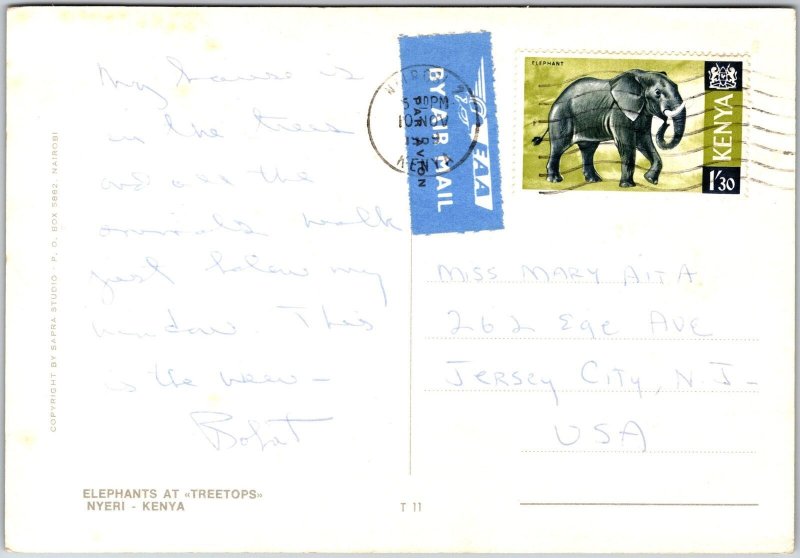 My house is
in the trees
and all the
animals walk
just below my
window. This
is the view –
ELEPHANTS AT «TREETOPS»
NYERI - KENYA
COPYRIGHT BY SAPRA STUDIO · P. O. BOX 5882, NAIROBI
T 11
BY AIR MAIL
PAR AVION
EAA
10 NOV
KENYA
ELEPHANT
KENYA
1/30
MISS MARY AITA
262 Ege AVE
JERSEY CITY, N.J–
USA